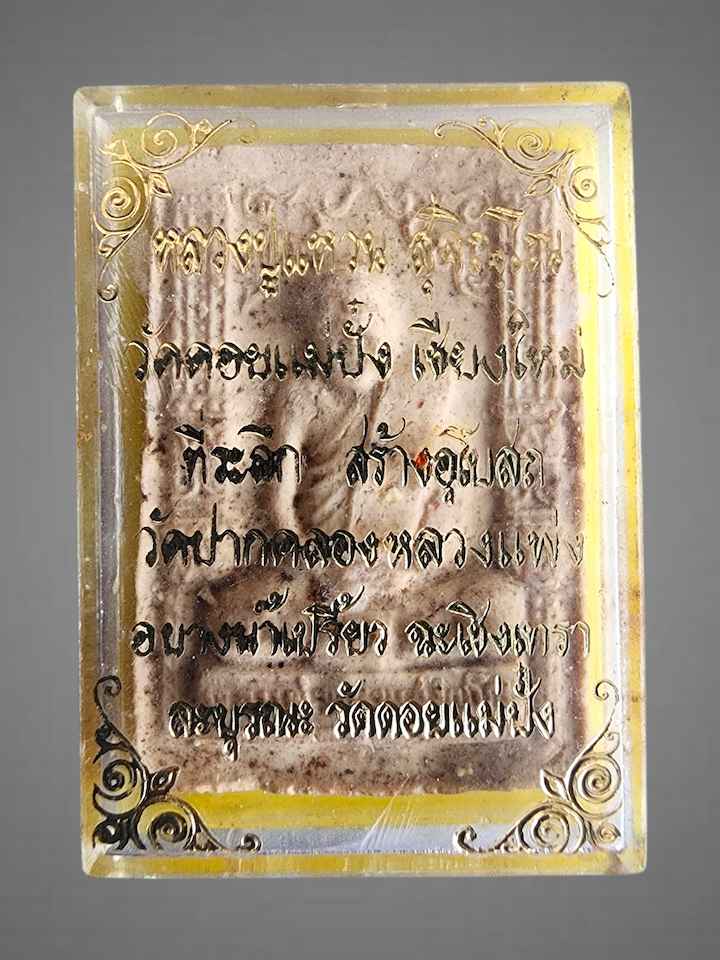 หลวงปู่แหวน สุจิณฺโณ
วัดดอยแม่ปั๋ง เชียงใหม่
ที่ระลึก สร้างอุโบสถ
วัดปากคลองหลวงแพ่ง
อ บางน้ำเปรี้ยว ฉะเชิงเทรา
ละบูรณะ วัดดอยแม่ปั๋ง